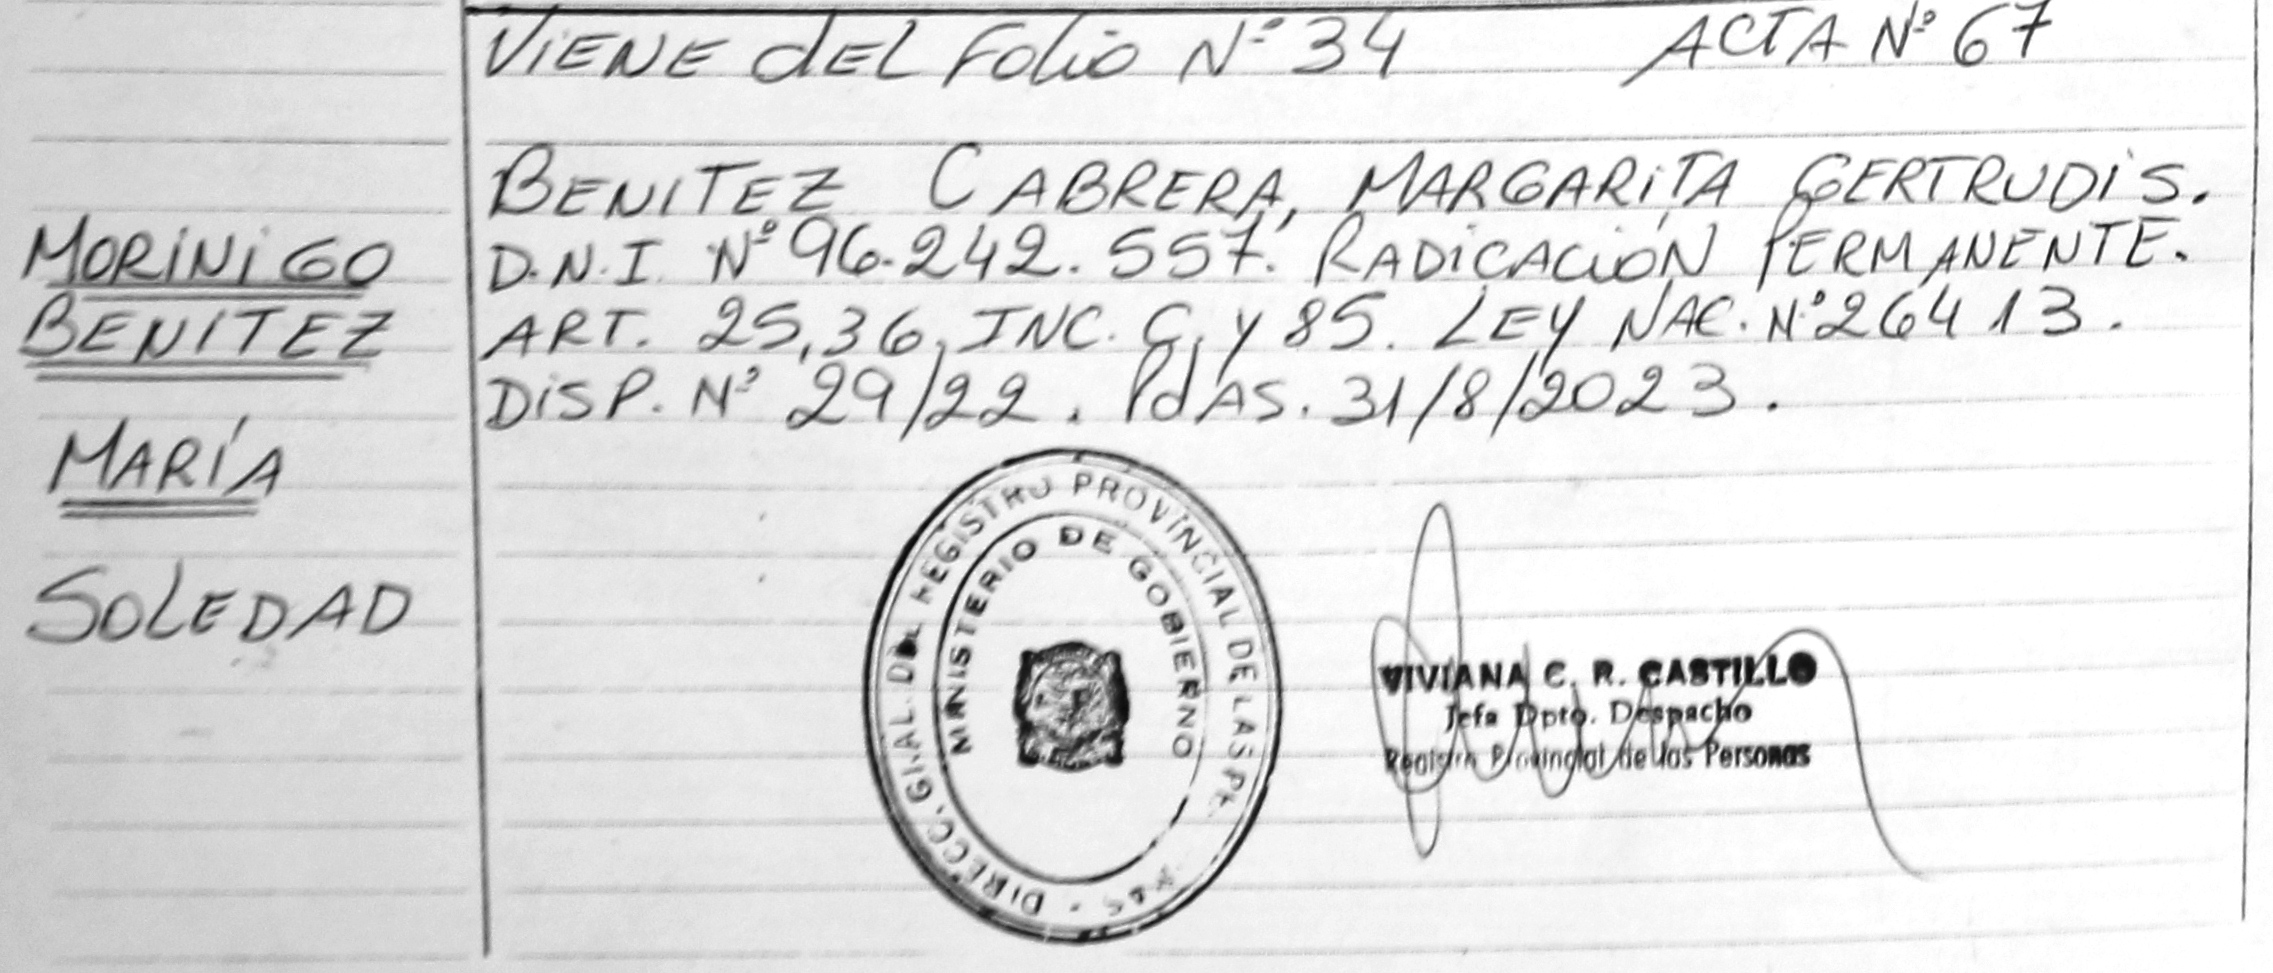 VIENE dEL FOLIO Nº 34 ACTA Nº 67
MORINIGO
BENITEZ
MARÍA
SOLEDAD
BENITEZ CABRERA, MARGARITA GERTRUDIS.
D.N.I. Nº 96.242.557. RADICACIÓN PERMANENTE.
ART. 25, 36, INC. C, Y 85. LEY NAC. Nº 26413.
DISP. Nº 29/22. PdAS. 31/8/2023.
DIRECC. GRAL. DEL REGISTRO PROVINCIAL DE LAS
MINISTERIO DE GOBIERNO
VIVIANA C. R. CASTILLO
Jefa Dpto. Despacho
Registro Provincial de las Personas